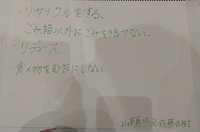 ・リサイクルをする。
・ごみ箱以外にごみを捨てない。
・リデュース
・食べ物をむだにしない。